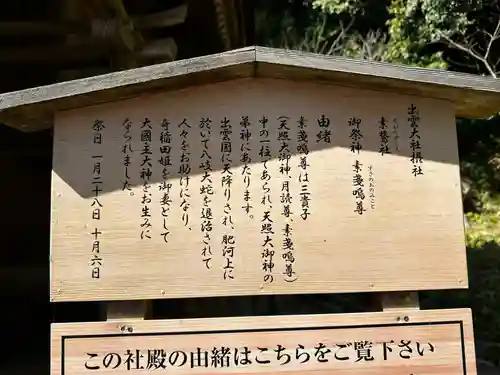 出雲大社摂社
素鵞社
そがのやしろ
御祭神 素戔嗚尊
すさのおのみこと
由緒
素戔嗚尊は三貴子
(天照大御神、月読尊、素戔嗚尊)
中の一柱であられ、天照大御神の
弟神にあたります。
出雲國に天降りされ、肥河上に
於いて八岐大蛇を退治されて
人々をお助けになり、
奇稲田姫を御妻として
大國主大神をお生みに
なられました。
祭日 一月二十八日 十月六日
この社殿の由緒はこちらをご覧下さい